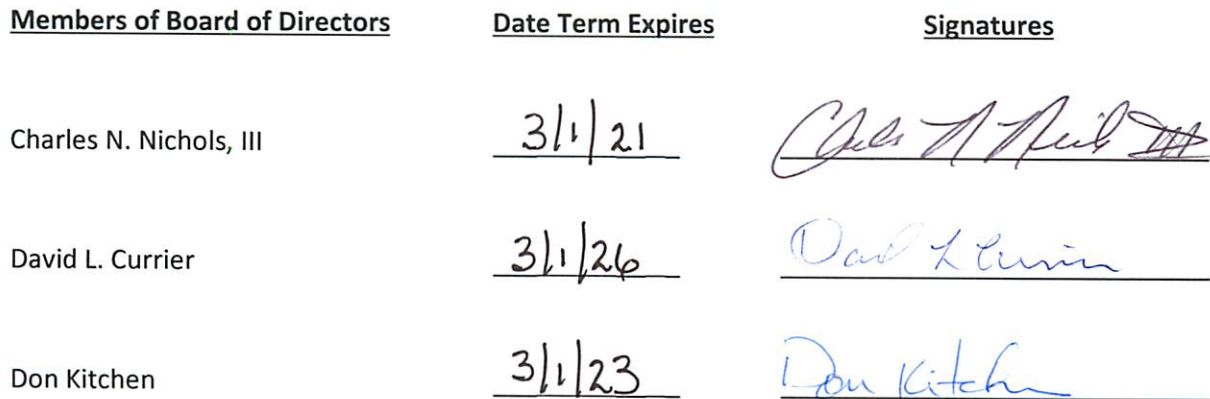 Members of Board of Directors Date Term Expires Signatures
Charles N. Nichols, III 3/1/21
David L. Currier 3/1/26 David L Currier
Don Kitchen 3/1/23 Don Kitchen